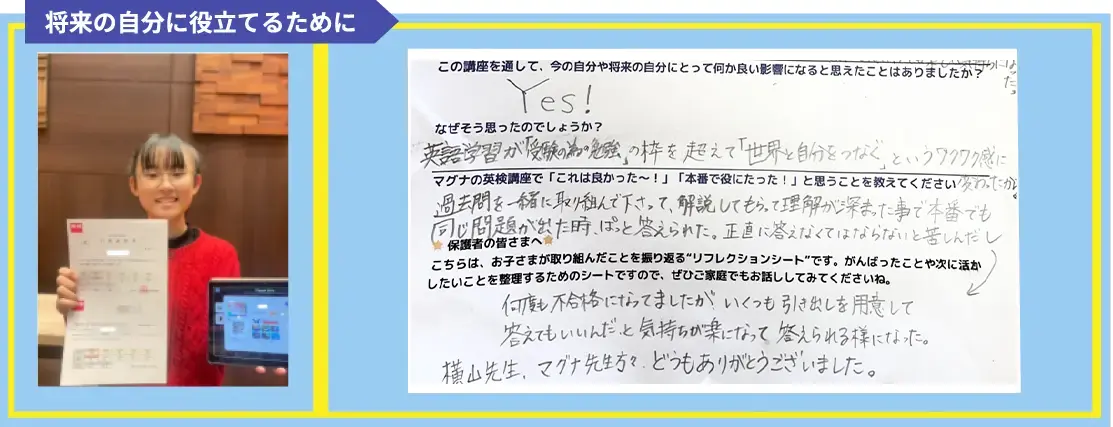 将来の自分に役立てるために
この講座を通して、今の自分や将来の自分にとって何か良い影響になると思えたことはありましたか？
Yes!
なぜそう思ったのでしょうか？
英語学習が「受験の為の勉強」の枠を超えて「世界と自分をつなぐ」というワクワク感に
変わったから。
マグナの英検講座で「これは良かった～！」「本番で役にたった！」と思うことを教えてください
過去問を一緒に取り組んで下さって、解説してもらって理解が深まった事で本番でも
同じ問題が出た時、ぱっと答えられた。正直に答えなくてはならないと苦しんだし
保護者の皆さまへ
こちらは、お子さまが取り組んだことを振り返る“リフレクションシート”です。がんばったことや次に活か
したいことを整理するためのシートですので、ぜひご家庭でもお話ししてみてくださいね。
何度も不合格になってましたが いくつも引き出しを用意して
答えてもいいんだと気持ちが楽になって 答えられる様になった。
横山先生、マグナ先生方々 どうもありがとうございました。